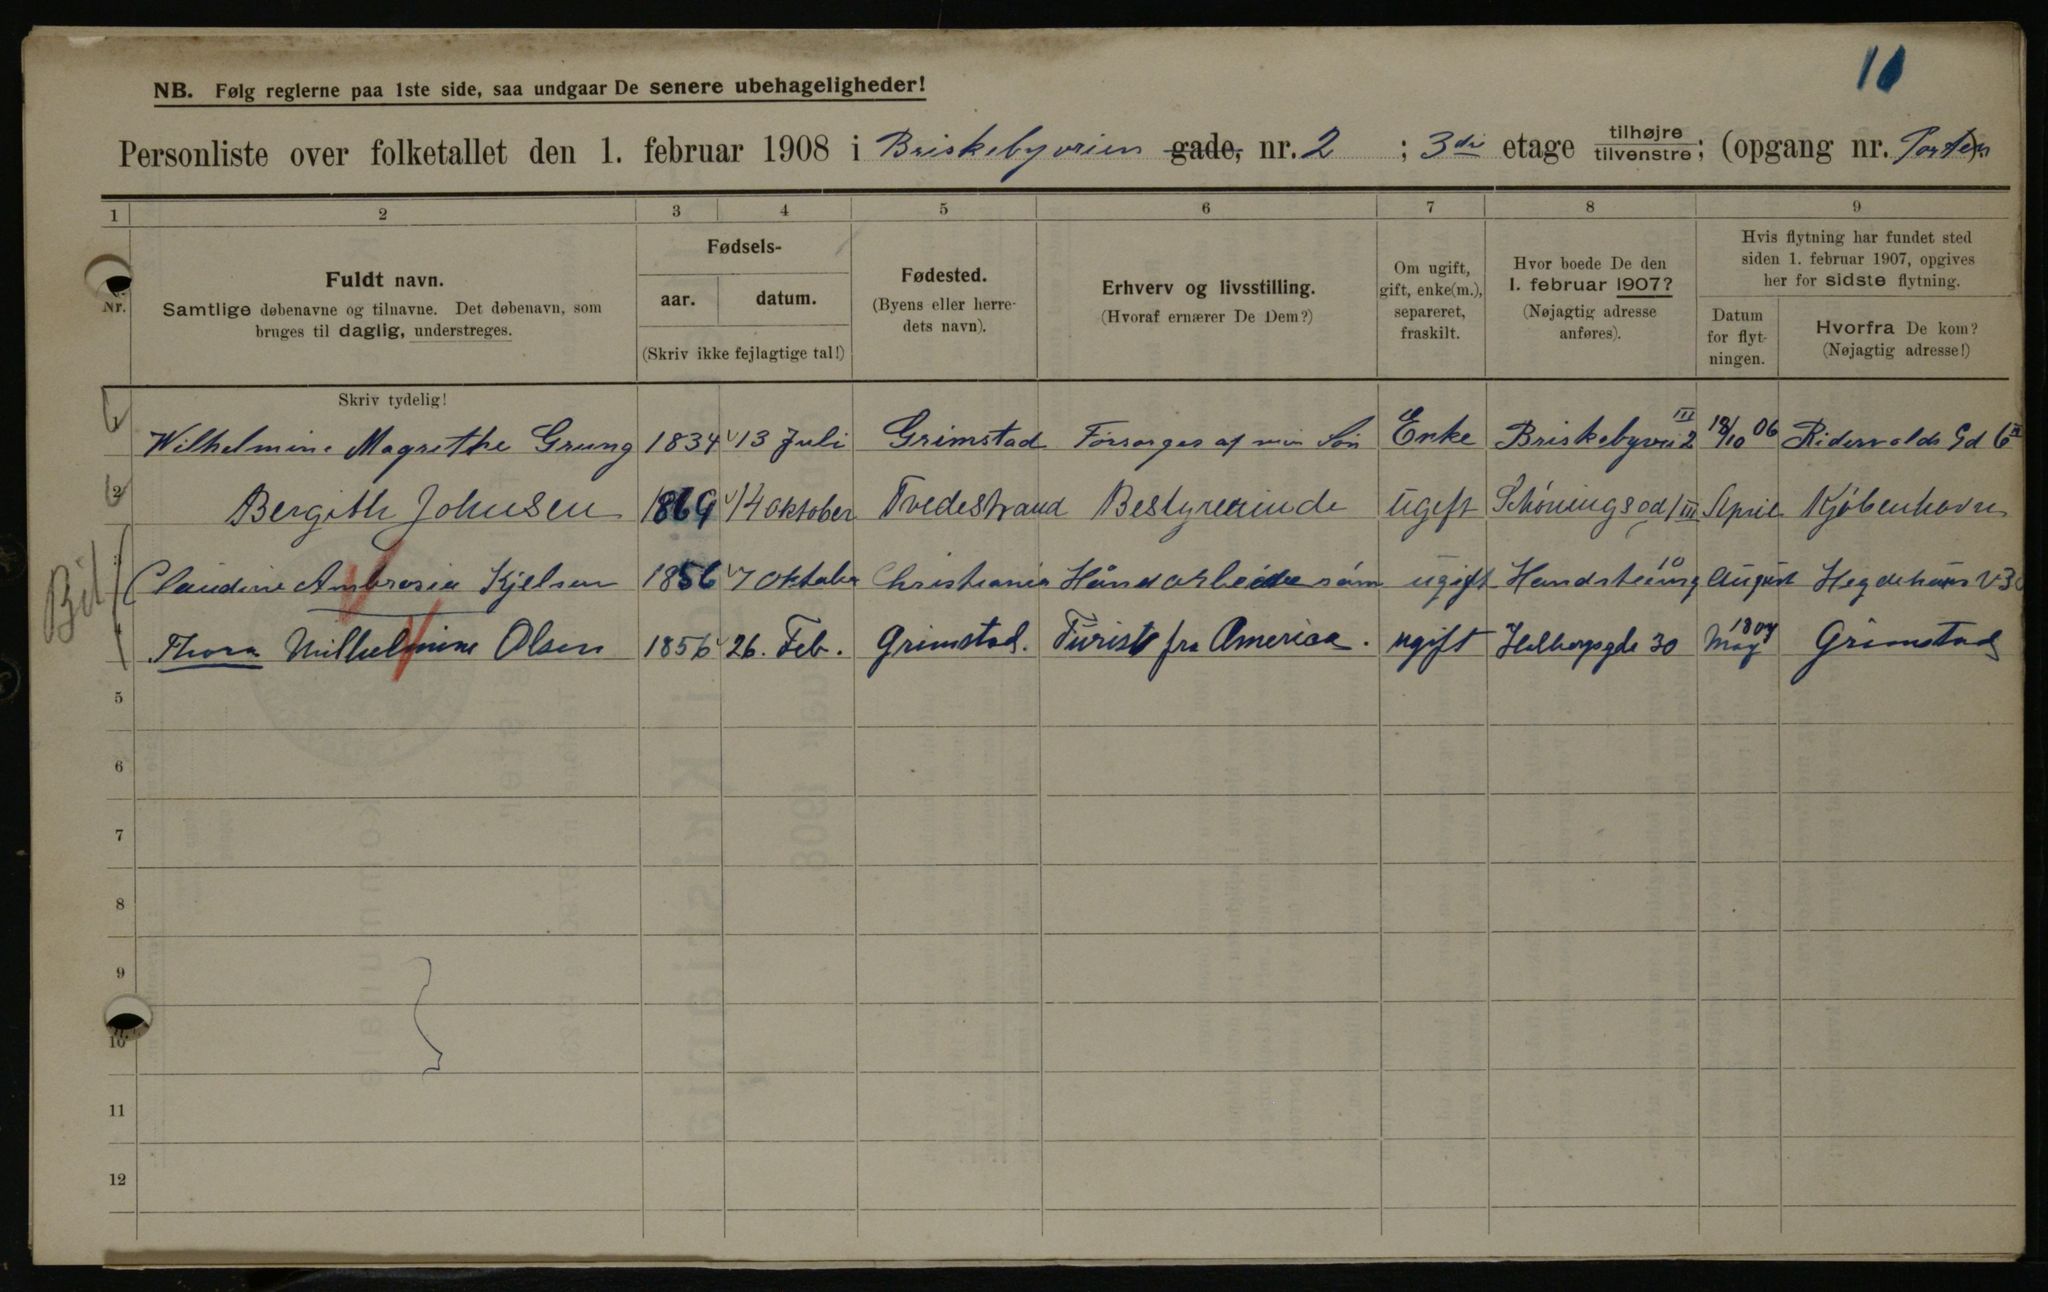 10
NB. Følg reglerne paa 1ste side, saa undgaar De senere ubehageligheder!
Personliste over folketallet den 1. februar 1908 i Briskebyveien gade, nr. 2 ; 3die etage tilhøjre tilvenstre; (opgang nr. Porten)
1 2 3 4 5 6 7 8 9
Nr.
Fuldt navn.
Samtlige døbenavne og tilnavne. Det døbenavn, som
bruges til daglig, understreges.
Skriv tydelig!
Fødsels-
aar. datum.
(Skriv ikke fejlagtige tal!)
Fødested.
(Byens eller herre-
dets navn).
Erhverv og livsstilling.
(Hvoraf ernærer De Dem?)
Om ugift,
gift, enke(m.),
separeret,
fraskilt.
Hvor boede De den
1. februar 1907?
(Nøjagtig adresse
anføres).
Hvis flytning har fundet sted
siden 1. februar 1907, opgives
her for sidste flytning.
Datum
for flyt-
ningen.
Hvorfra De kom?
(Nøjagtig adresse!)
1 Wilhelmine Magrethe Grung 1834 13 Juli Grimstad Forsørges af min Søn Enke Briskebyvei 2 III 18/10 06 Ridervolds Gd 6 III
2 Bergith Johnsen 1869 14 oktober Tvedestrand Bestyrerinde ugift Schøningsgd 1 III April Kjøbenhavn
Bil
Claudine Ambrosia Kjelsen 1856 7 oktober Christiania Håndarbeide søm ugift 10 August Hegdehaus V 30
4 Thora Wilhelmine Olsen 1856 26. Feb. Grimstad. Turist fra America. ugift Holbergsgde 30 May 1907 Grimstad
5
6
7
8
9
10
11
12